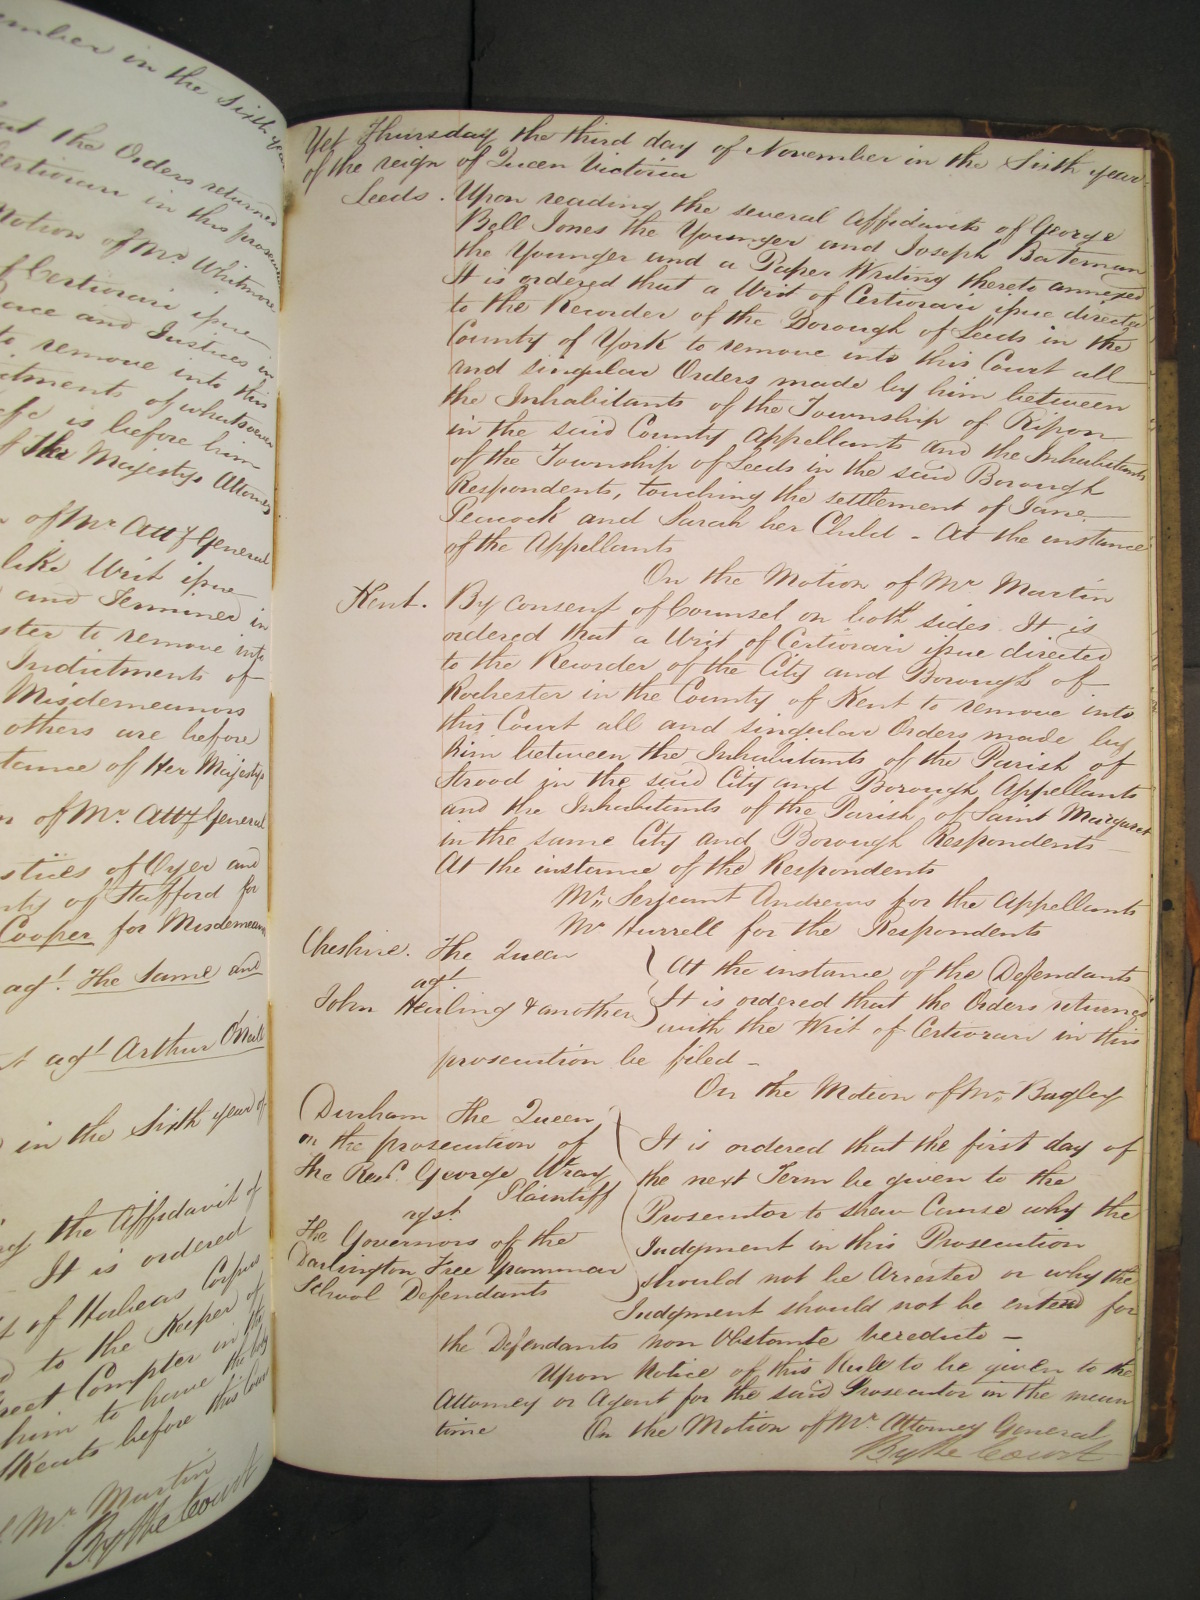 ember in the Sixth year
that the Orders returned
Certiorari in this prosecution
Motion of Mr. Whitmore
of Certiorari issue
Peace and Justices in
to remove into this
Indictments of whatsoever
is before him
of Her Majestys Attorney
of Mr Atty General
like Writ issue
and Terminer in
ster to remove into
Indictments of
Misdemeanors
others are before
tance of Her Majestys
of Mr. Atty General
stices of Oyer and
nty of Stafford for
Cooper for Misdemeanor
agt. The Same and
agt Arthur O'Neill
in the Sixth year of
the Affidavit of
It is ordered
of Habeas Corpus
to the Keeper of
Compter in the
him to have the body
before this Court
Mr Martin
By the Court
Yet Thursday the third day of November in the Sixth year
of the reign of Queen Victoria
Leeds. Upon reading the several Affidavits of George
Bell Jones the Younger and Joseph Bateman
the Younger and a Paper Writing thereto annexed
It is ordered that a Writ of Certiorari issue directed
to the Recorder of the Borough of Leeds in the
County of York to remove into this Court all
and singular Orders made by him between
the Inhabitants of the Township of Ripon
in the said County Appellants and the Inhabitants
of the Township of Leeds in the said Borough
Respondents, touching the settlement of Jane
Peacock and Sarah her Child - At the instance
of the Appellants
On the Motion of Mr Martin
Kent. By consent of Counsel on both sides It is
ordered that a Writ of Certiorari issue directed
to the Recorder of the City and Borough of
Rochester in the County of Kent to remove into
this Court all and singular Orders made by
him between the Inhabitants of the Parish of
Strood in the said City and Borough Appellants
and the Inhabitants of the Parish of Saint Margaret
in the same City and Borough Respondents
At the instance of the Respondents
Mr. Serjeant Andrews for the Appellants
Mr Hurrell for the Respondents
Cheshire. The Queen
agt.
John & another
At the instance of the Defendants
It is ordered that the Orders returned
with the Writ of Certiorari in this
prosecution be filed -
On the Motion of Mr. Bagley
Durham The Queen
on the prosecution of
the Revd. George Wray
Plaintiff
agst.
The Governors of the
Darlington Free Grammar
School Defendants
It is ordered that the first day of
the next Term be given to the
Prosecutor to shew Cause why the
Judgment in this Prosecution
should not be Arrested or why the
Judgment should not be entered for
the Defendants non Obstante veredicto -
Upon Notice of this Rule to be given to the
Attorney or Agent for the said Prosecutor in the mean
time On the Motion of Mr. Attorney General
By the Court